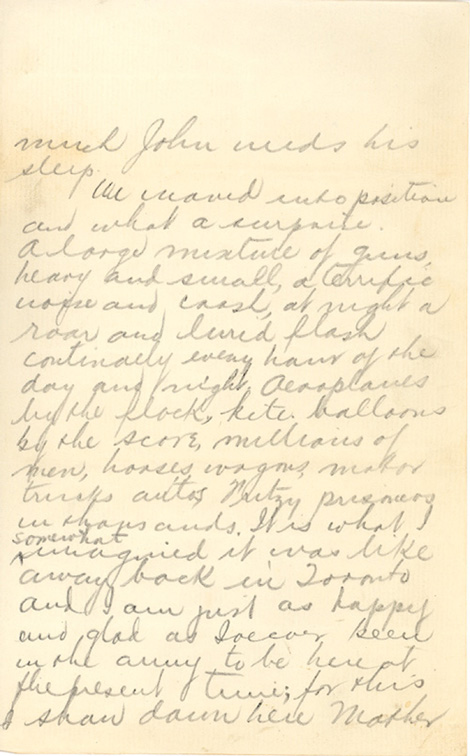 much John needs his
sleep.
We moved into position
and what a surprise.
A large mixture of guns,
heavy and small, a terrific
noise and crash, at night a
roar and lurid flash
continually every hour of the
day and night. Aeroplanes
by the flock, kite balloons
by the score, millions of
men, horses, wagons, motor
trucks autos, Fritzy prisoners
in thousands. It is what I
somewhat
imagined it was like
away back in Toronto
and I am just as happy
and glad as I ever been
in the army to be here at
the present time; for this
show down here Mother